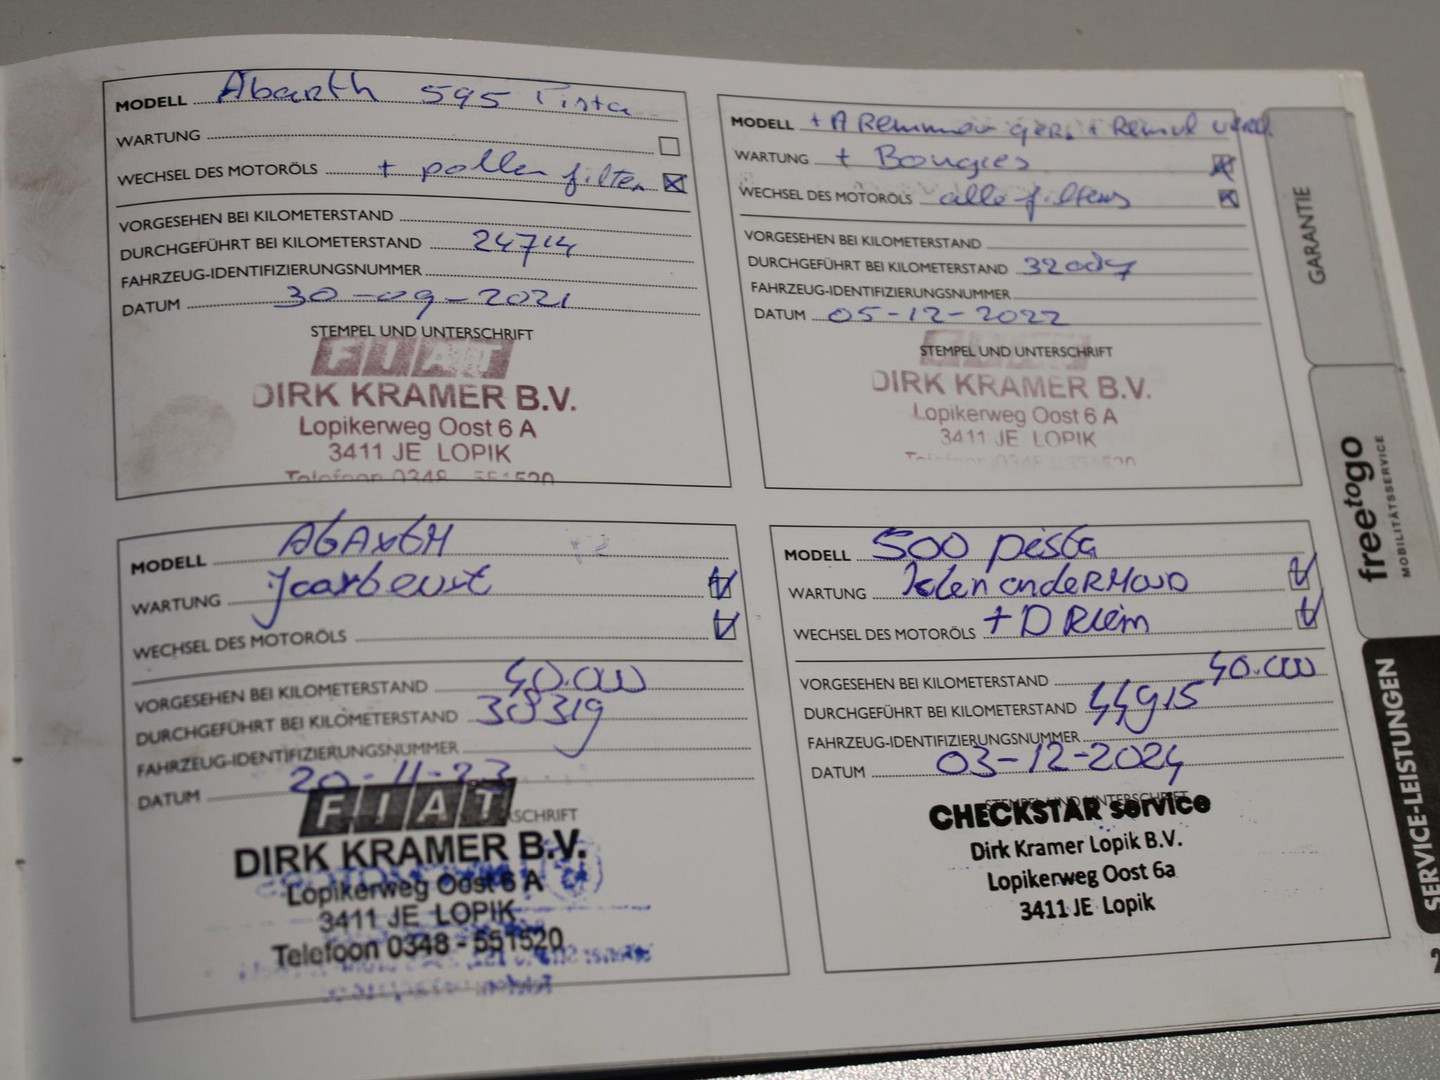 MODELL Abarth 595 Pista
WARTUNG
WECHSEL DES MOTORÖLS + pollen filter
VORGESEHEN BEI KILOMETERSTAND
DURCHGEFÜHRT BEI KILOMETERSTAND 24714
FAHRZEUG-IDENTIFIZIERUNGSNUMMER
DATUM 30-09-2021
STEMPEL UND UNTERSCHRIFT
FIAT
DIRK KRAMER B.V.
Lopikerweg Oost 6 A
3411 JE LOPIK
Telefoon 0348 - 551520
MODELL + A Remmen gere. + Remvl
WARTUNG + Bougies
WECHSEL DES MOTORÖLS alle filters
VORGESEHEN BEI KILOMETERSTAND
DURCHGEFÜHRT BEI KILOMETERSTAND
FAHRZEUG-IDENTIFIZIERUNGSNUMMER
DATUM 05-12-2022
STEMPEL UND UNTERSCHRIFT
DIRK KRAMER B.V.
Lopikerweg Oost 6 A
3411 JE LOPIK
MODELL AbARtH
WARTUNG Jaarbeurt
WECHSEL DES MOTORÖLS
VORGESEHEN BEI KILOMETERSTAND 40.000
DURCHGEFÜHRT BEI KILOMETERSTAND 38319
FAHRZEUG-IDENTIFIZIERUNGSNUMMER
DATUM 20-11-23
FIAT
RSCHRIFT
DIRK KRAMER B.V.
Lopikerweg Oost 6 A
3411 JE LOPIK
Telefoon 0348 - 551520
MODELL 500 pista
WARTUNG klein ondeRHOUD
WECHSEL DES MOTORÖLS + D Riem
VORGESEHEN BEI KILOMETERSTAND 40.000
DURCHGEFÜHRT BEI KILOMETERSTAND 44915
FAHRZEUG-IDENTIFIZIERUNGSNUMMER
DATUM 03-12-2024
STEMPEL UND UNTERSCHRIFT
CHECKSTAR service
Dirk Kramer Lopik B.V.
Lopikerweg Oost 6a
3411 JE Lopik
GARANTIE
freetogo
MOBILITÄTSSERVICE
SERVICE-LEISTUNGEN
2